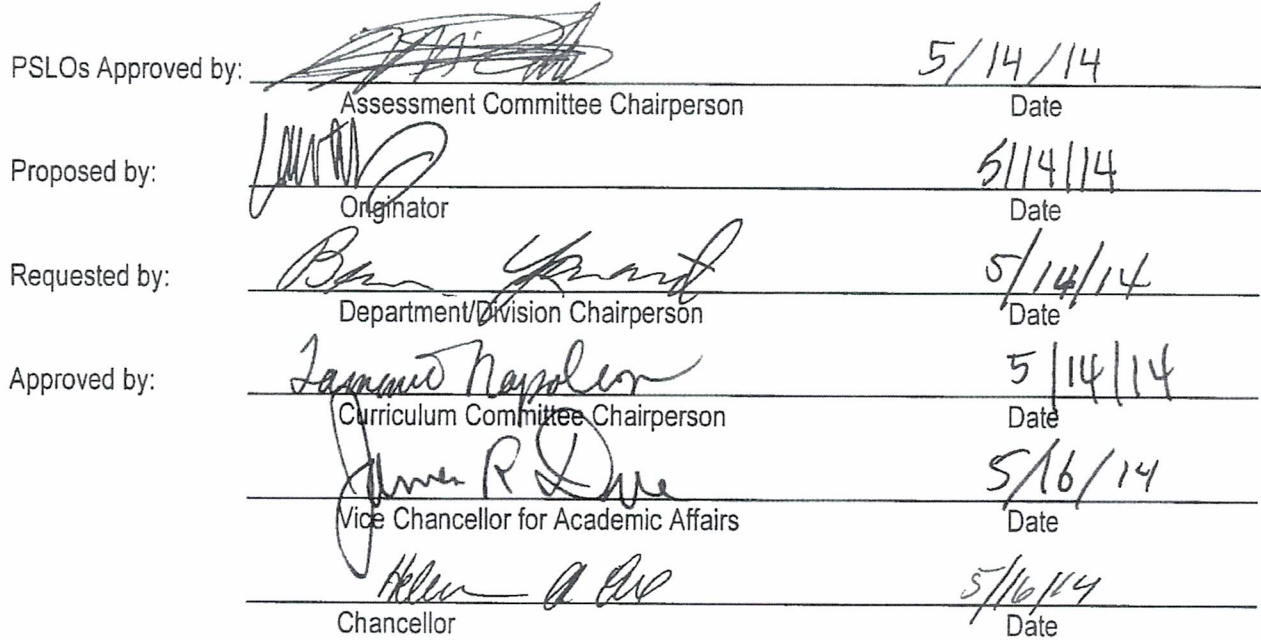 PSLOs Approved by: 5/14/14
Assessment Committee Chairperson Date
Proposed by: 5/14/14
Originator Date
Requested by: 5/14/14
Department/Division Chairperson Date
Approved by: Napoleon 5/14/14
Curriculum Committee Chairperson Date
James R 5/16/14
Vice Chancellor for Academic Affairs Date
Helen A 5/16/14
Chancellor Date